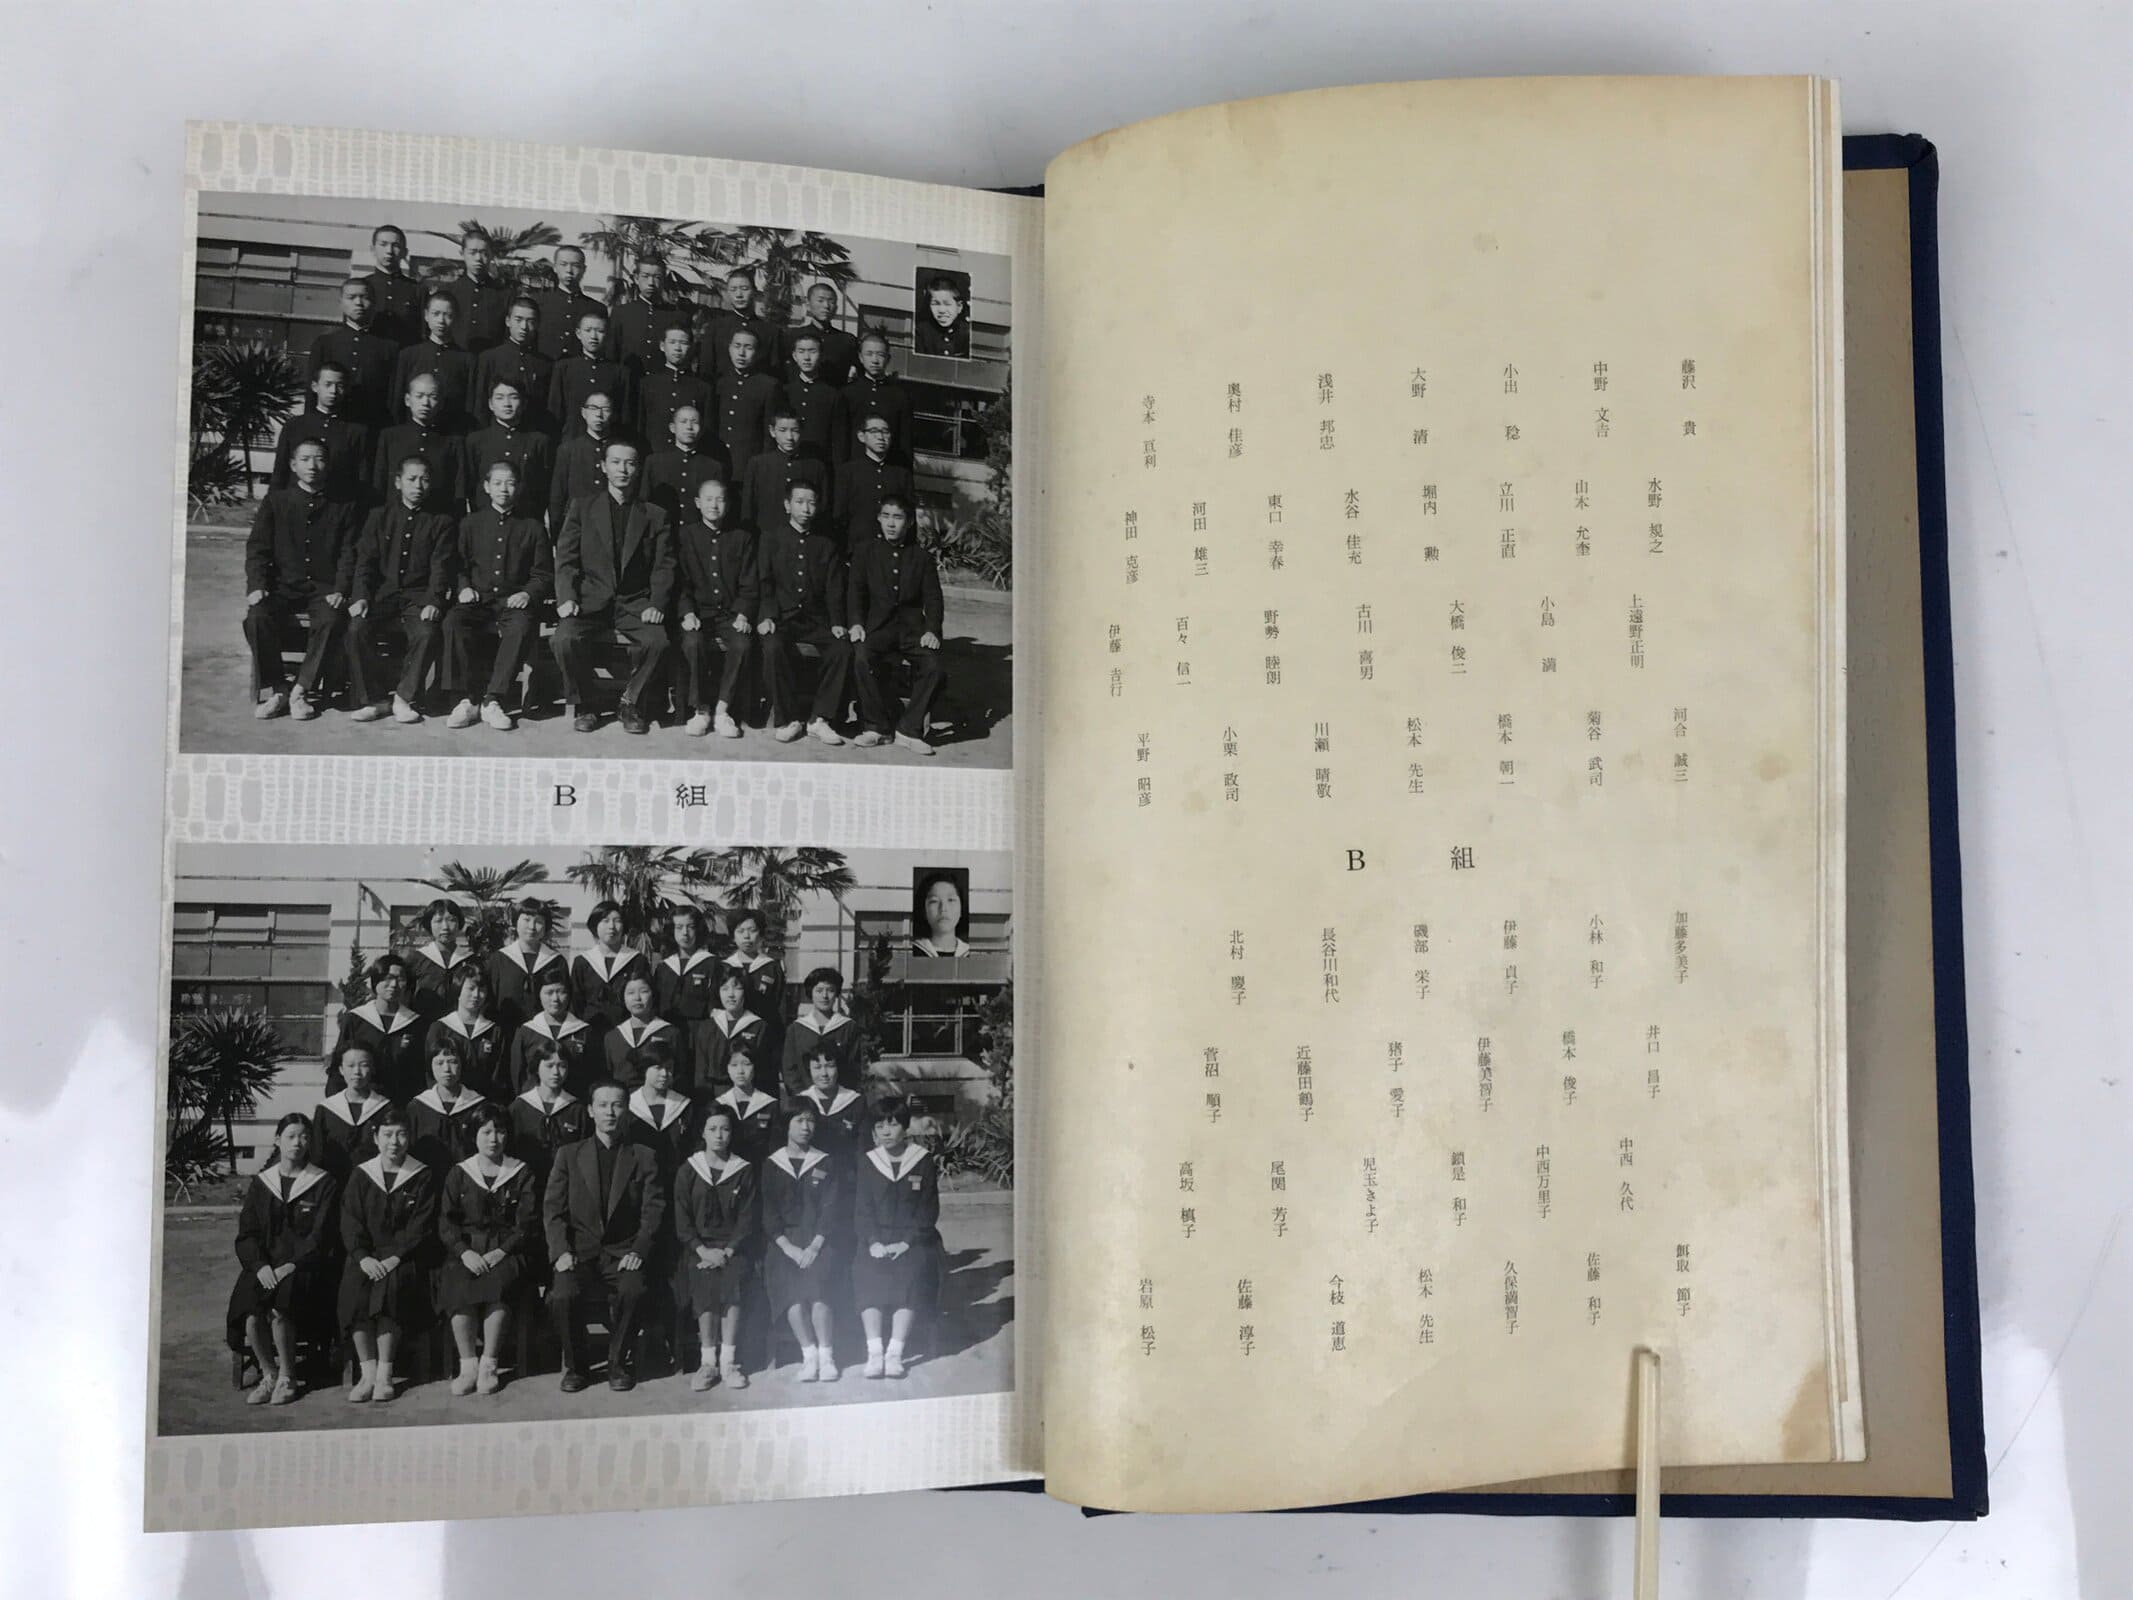 B 組
藤沢 貴
中野 文吉
小出 稔
大野 清
浅井 邦忠
奥村 佳彦
寺本 亘利
水野 規之
山本 允奎
立川 正直
堀内 勲
水谷 佳充
東口 幸春
河田 雄三
神田 克彦
上遠野正明
小島 満
大橋 俊二
古川 喜男
野勢 睦朗
百々 信一
伊藤 吉行
河合 誠三
菊谷 武司
橋本 朝一
松本 先生
川瀬 晴敬
小栗 政司
平野 昭彦
B 組
加藤多美子
小林 和子
伊藤 貞子
磯部 栄子
長谷川和代
北村 慶子
井口 昌子
橋本 俊子
伊藤美智子
猪子 愛子
近藤田鶴子
菅沼 順子
中西 久代
中西万里子
鎖是 和子
児玉きよ子
尾関 芳子
高坂 槙子
餌取 節子
佐藤 和子
久保満智子
松本 先生
今枝 道恵
佐藤 淳子
岩原 松子